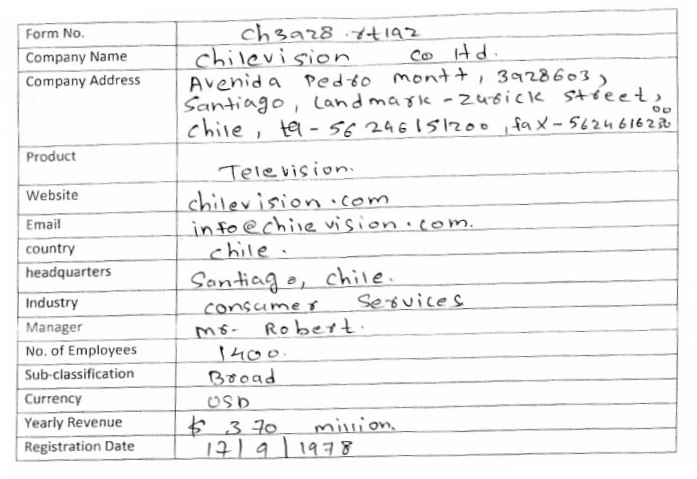 Form No. ch3a28.rt1a2
Company Name Chilevision Co ltd.
Company Address Avenida Pedro montt, 3928603,
Santiago, Landmark - Zurick street,
chile, tel - 56 246151200, fax - 562461620000
Product Television.
Website chilevision.com
Email info@chilevision.com.
country chile.
headquarters Santiago, chile.
Industry consumer Services
Manager mr. Robert.
No. of Employees 1400.
Sub-classification Broad
Currency USD
Yearly Revenue $ 370 million.
Registration Date 17/9/1978